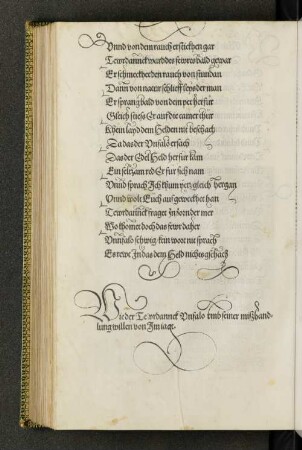 Vnnd von dem rauch ersticket gar
Tewrdannck ward des fewrs bald gewar
Er schmeckhet den rauch von stundan
Dann von natur schlieff leys der man
Er sprang bald von dem pet herfür
Gleich stiess Er auf die camer thür
Khein layd dem Helden nit beschach
Da das der Vnfalo ersach
Das der Edel Held herfür kam
Ein seltzam red Er für sich nam
Vnnd sprach Ich khum yetz gleich hergan
Vnnd wolt Euch aufgeweckhet han
Tewrdannck fraget In on der mer
Wo khomet doch das fewr daher
Vnnfalo schwig kein wort nit sprach
Es rewt In das dem Held nichts gschach
Wie der Tewrdannck Vnfalo vmb seiner mißhand-
lung willen von Im iagt.